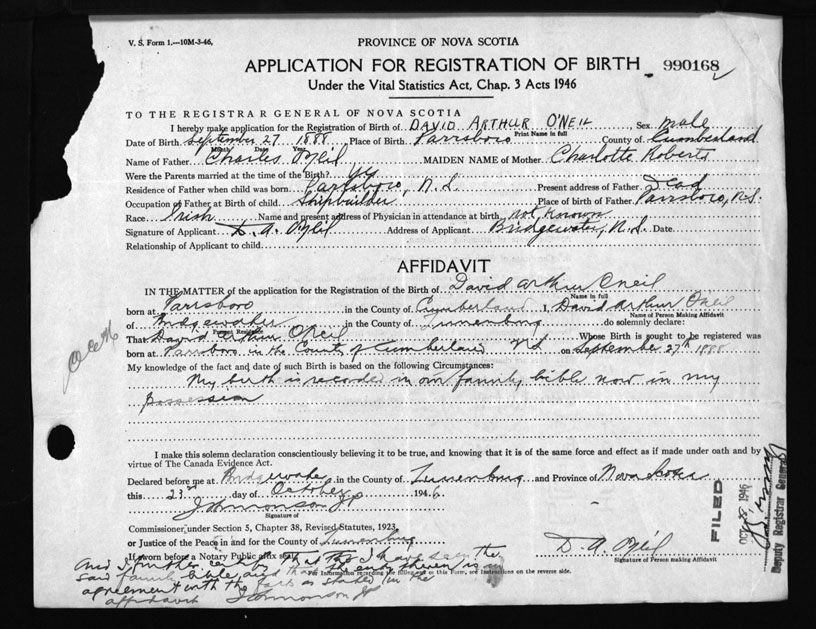 V. S. Form 1.—10M-3-46,
PROVINCE OF NOVA SCOTIA
APPLICATION FOR REGISTRATION OF BIRTH 990168
Under the Vital Statistics Act, Chap. 3 Acts 1946
TO THE REGISTRAR GENERAL OF NOVA SCOTIA
I hereby make application for the Registration of Birth of DAVID ARTHUR O'NEIL Sex male
Print Name in full
Date of Birth September 27 1888 Place of Birth Parrsboro County of Cumberland
Month Date Year
Name of Father Charles O'Neil MAIDEN NAME of Mother Charlotte Roberts
Were the Parents married at time of the Birth? yes
Residence of Father when child was born Parrsboro, N.S. Present address of Father Dead
Occupation of Father at Birth of child Shipbuilder Place of birth of Father Parrsboro, N.S.
Race Irish Name and present address of Physician in attendance at birth not known
Signature of Applicant D. A. O'Neil Address of Applicant Bridgewater, N.S. Date
Relationship of Applicant to child
AFFIDAVIT
IN THE MATTER of the application for the Registration of the Birth of David Arthur O'Neil
Name in full
born at Parrsboro in the County of Cumberland I, David Arthur O'Neil
Name of Person Making Affidavit
of Bridgewater in the County of Lunenburg do solemnly declare:
Present Residence
That David Arthur O'Neil Whose Birth is sought to be registered was
born at Parrsboro in the County of Cumberland NS on September 27th 1888
My knowledge of the fact and date of such Birth is based on the following Circumstances:
My birth is recorded in our family bible now in my
possession
I make this solemn declaration conscientiously believing it to be true, and knowing that it is of the same force and effect as if made under oath and by
virtue of The Canada Evidence Act.
Declared before me at Bridgewater in the County of Lunenburg and Province of Nova Scotia
this 23rd day of October 1946
Signature of
Commissioner under Section 5, Chapter 38, Revised Statutes, 1923
or Justice of the Peace in and for the County of Lunenburg
If sworn before a Notary Public affix seal
D. A. O'Neil
Signature of Person making Affidavit
And I further certify that I have seen the
said family bible and that the entry therein is in
For information regarding the filling out of this Form, see Instructions on the reverse side.
agreement with the facts as stated in the
affidavit
FILED
OCT 28 1946
Deputy Registrar General